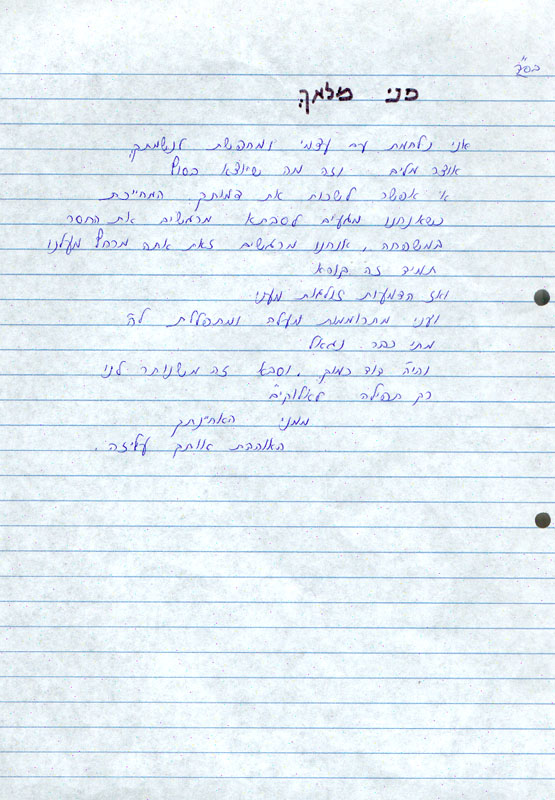 בס"ד
פני מלמך
אני נלחמת עם עצמי ומחפשת לנשמתך
אוצר מלים וזה מה שיוצא בסוף
אי אפשר לשכוח את דמותך המחייכת
כשאנחנו מגעים לסבתא מרגשים את החסר
במשפחה, אנחנו מרגשים זאת אתה מרחף מעלנו
תמיד זה קורא
ואז הדמעות זולגות מעני
ועני מתרוממות מעלה ומתפללת לה'
מתי כבר נגאל
והיה דוד כמוך, וסבא זה משנותר לנו
רק תפילה לאלוקים
ממני האחינתך
האוהבת אותך עליזה.